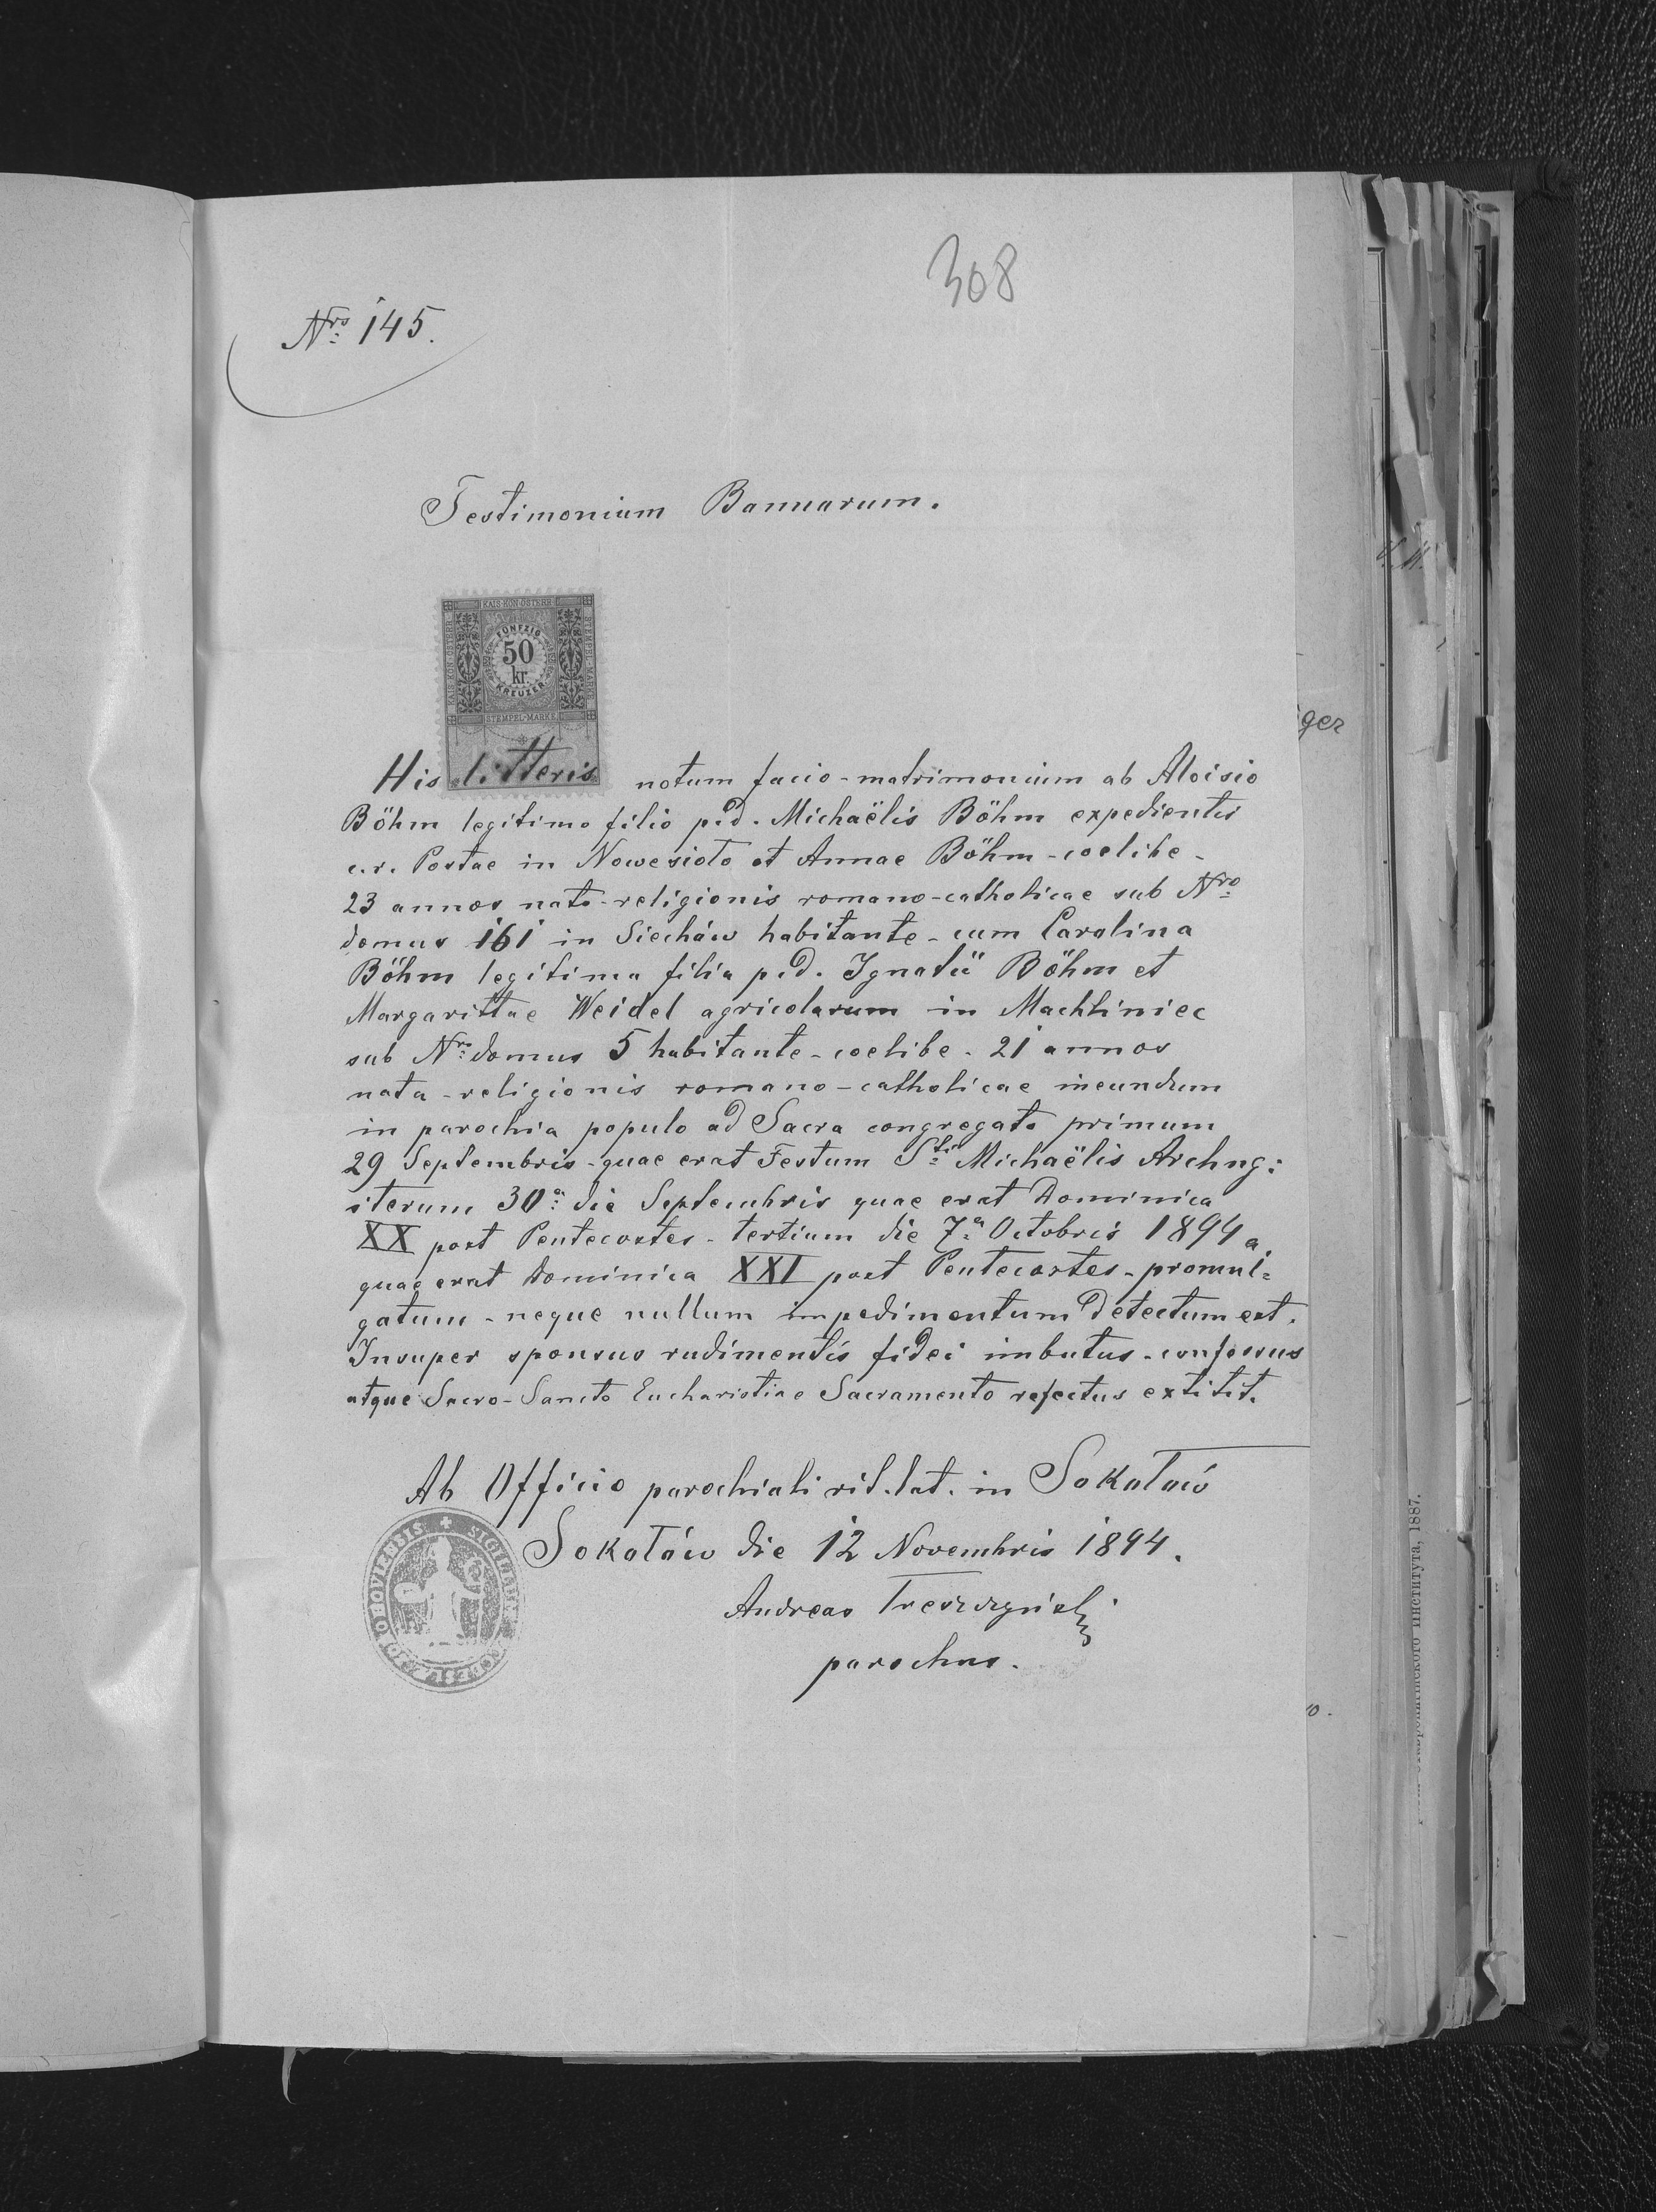 308
Nro 145.
Testimonium Bannarum.
KAIS. KÖN. ÖSTERR.
STEMPEL-MARKE
FÜNFZIG
50
kr.
KREUZER
STEMPEL-MARKE
His litteris notum facio - matrimonium ab Aloisio
Böhm legitimo filio p.d. Michaëlis Böhm expedientis
c.r. Postae in Nowesioło et Annae Böhm - coelibe -
23 annos nato - religionis romano-catholicae sub Nro
domus 161 in Siechów habitante - cum Carolina
Böhm legitima filia p.d. Ignatii Böhm et
Margarittae Weidel agricolarum in Machliniec
sub Nro domus 5 habitante - coelibe - 21 annos
nata - religionis romano-catholicae ineundum
in parochia populo ad Sacra congregato primum
29 Septembris - quae erat Festum Sti Michaëlis Archng:
iterum 30a die Septembris quae erat Dominica
XX post Pentecostes - tertium die 7a Octobris 1894 a
quae erat Dominica XXI post Pentecostes - promul=
gatum - neque nullum impedimentum detectum est.
Insuper sponsus rudimentis fidei imbutus - confessus
atque Sacro-Sancto Eucharistiae Sacramento refectus extitit.
Ab Officio parochiali rit. lat. in Sokołów
Sokołów die 12 Novembris 1894.
Andreas
parochus.
ger
института, 1887.